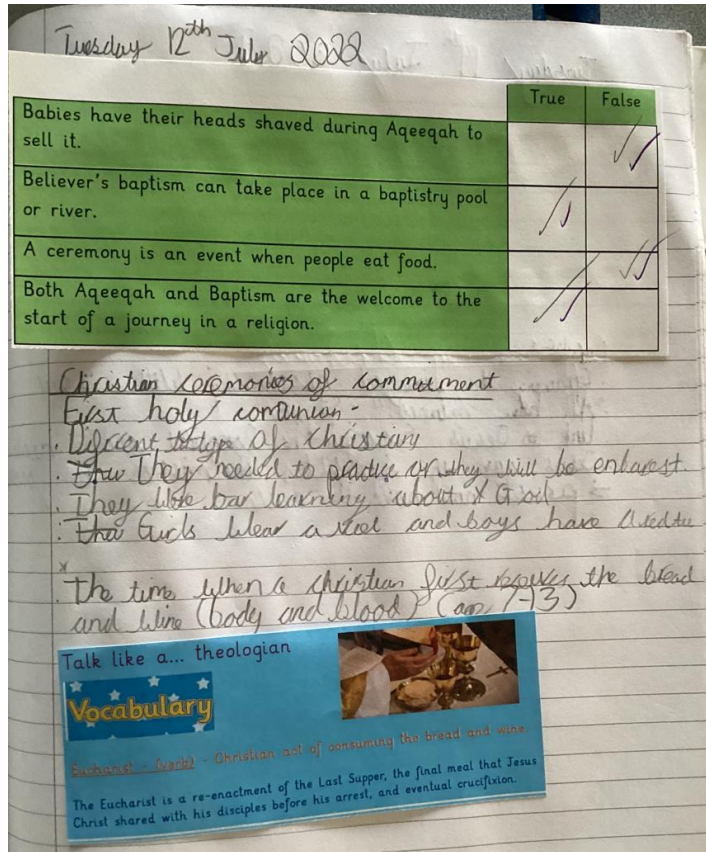 Tuesday 12th July 2022
True False
Babies have their heads shaved during Aqeeqah to
sell it.
Believer's baptism can take place in a baptistry pool
or river.
A ceremony is an event when people eat food.
Both Aqeeqah and Baptism are the welcome to the
start of a journey in a religion.
Christian ceremonies of commitment
First holy comunion -
type of Christian
They needed to practice or they will be
They learning about God
Girls wear a and boys have a
The time when a christian first the bread
and wine (body and blood) 7-13)
Talk like a... theologian
Vocabulary
Eucharist - (verb) - Christian act of consuming the bread and wine.
The Eucharist is a re-enactment of the Last Supper, the final meal that Jesus
Christ shared with his disciples before his arrest, and eventual crucifixion.